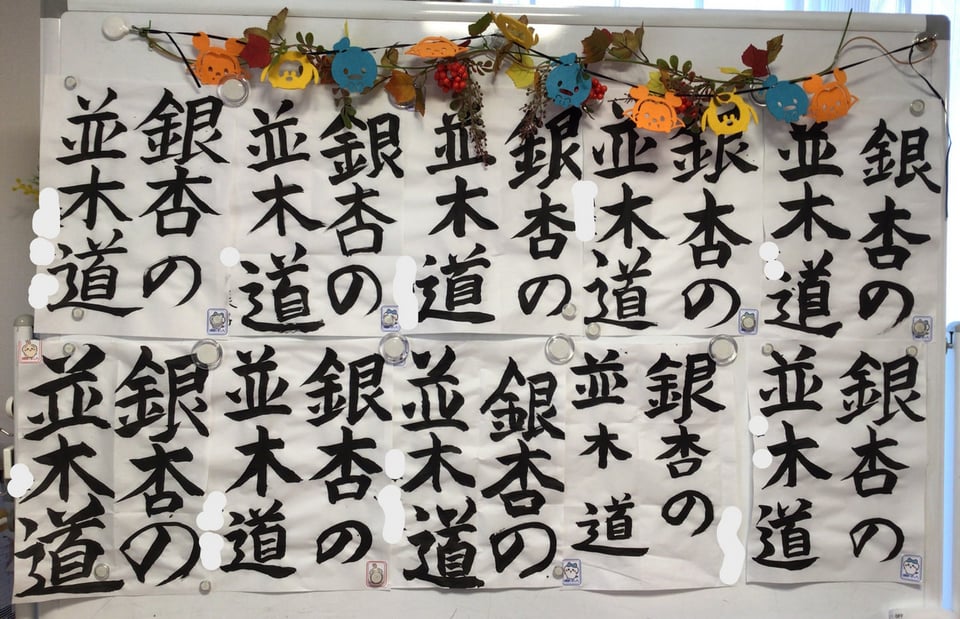 銀杏の
並木道
銀杏の
並木道
銀杏の
並木道
銀杏の
並木道
銀杏の
並木道
銀杏の
並木道
銀杏の
並木道
銀杏の
並木道
銀杏の
並木道
銀杏の
並木道